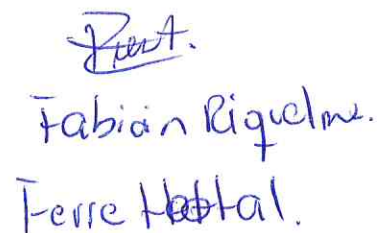 Fabián Riquelme.
Ferre Hostal.